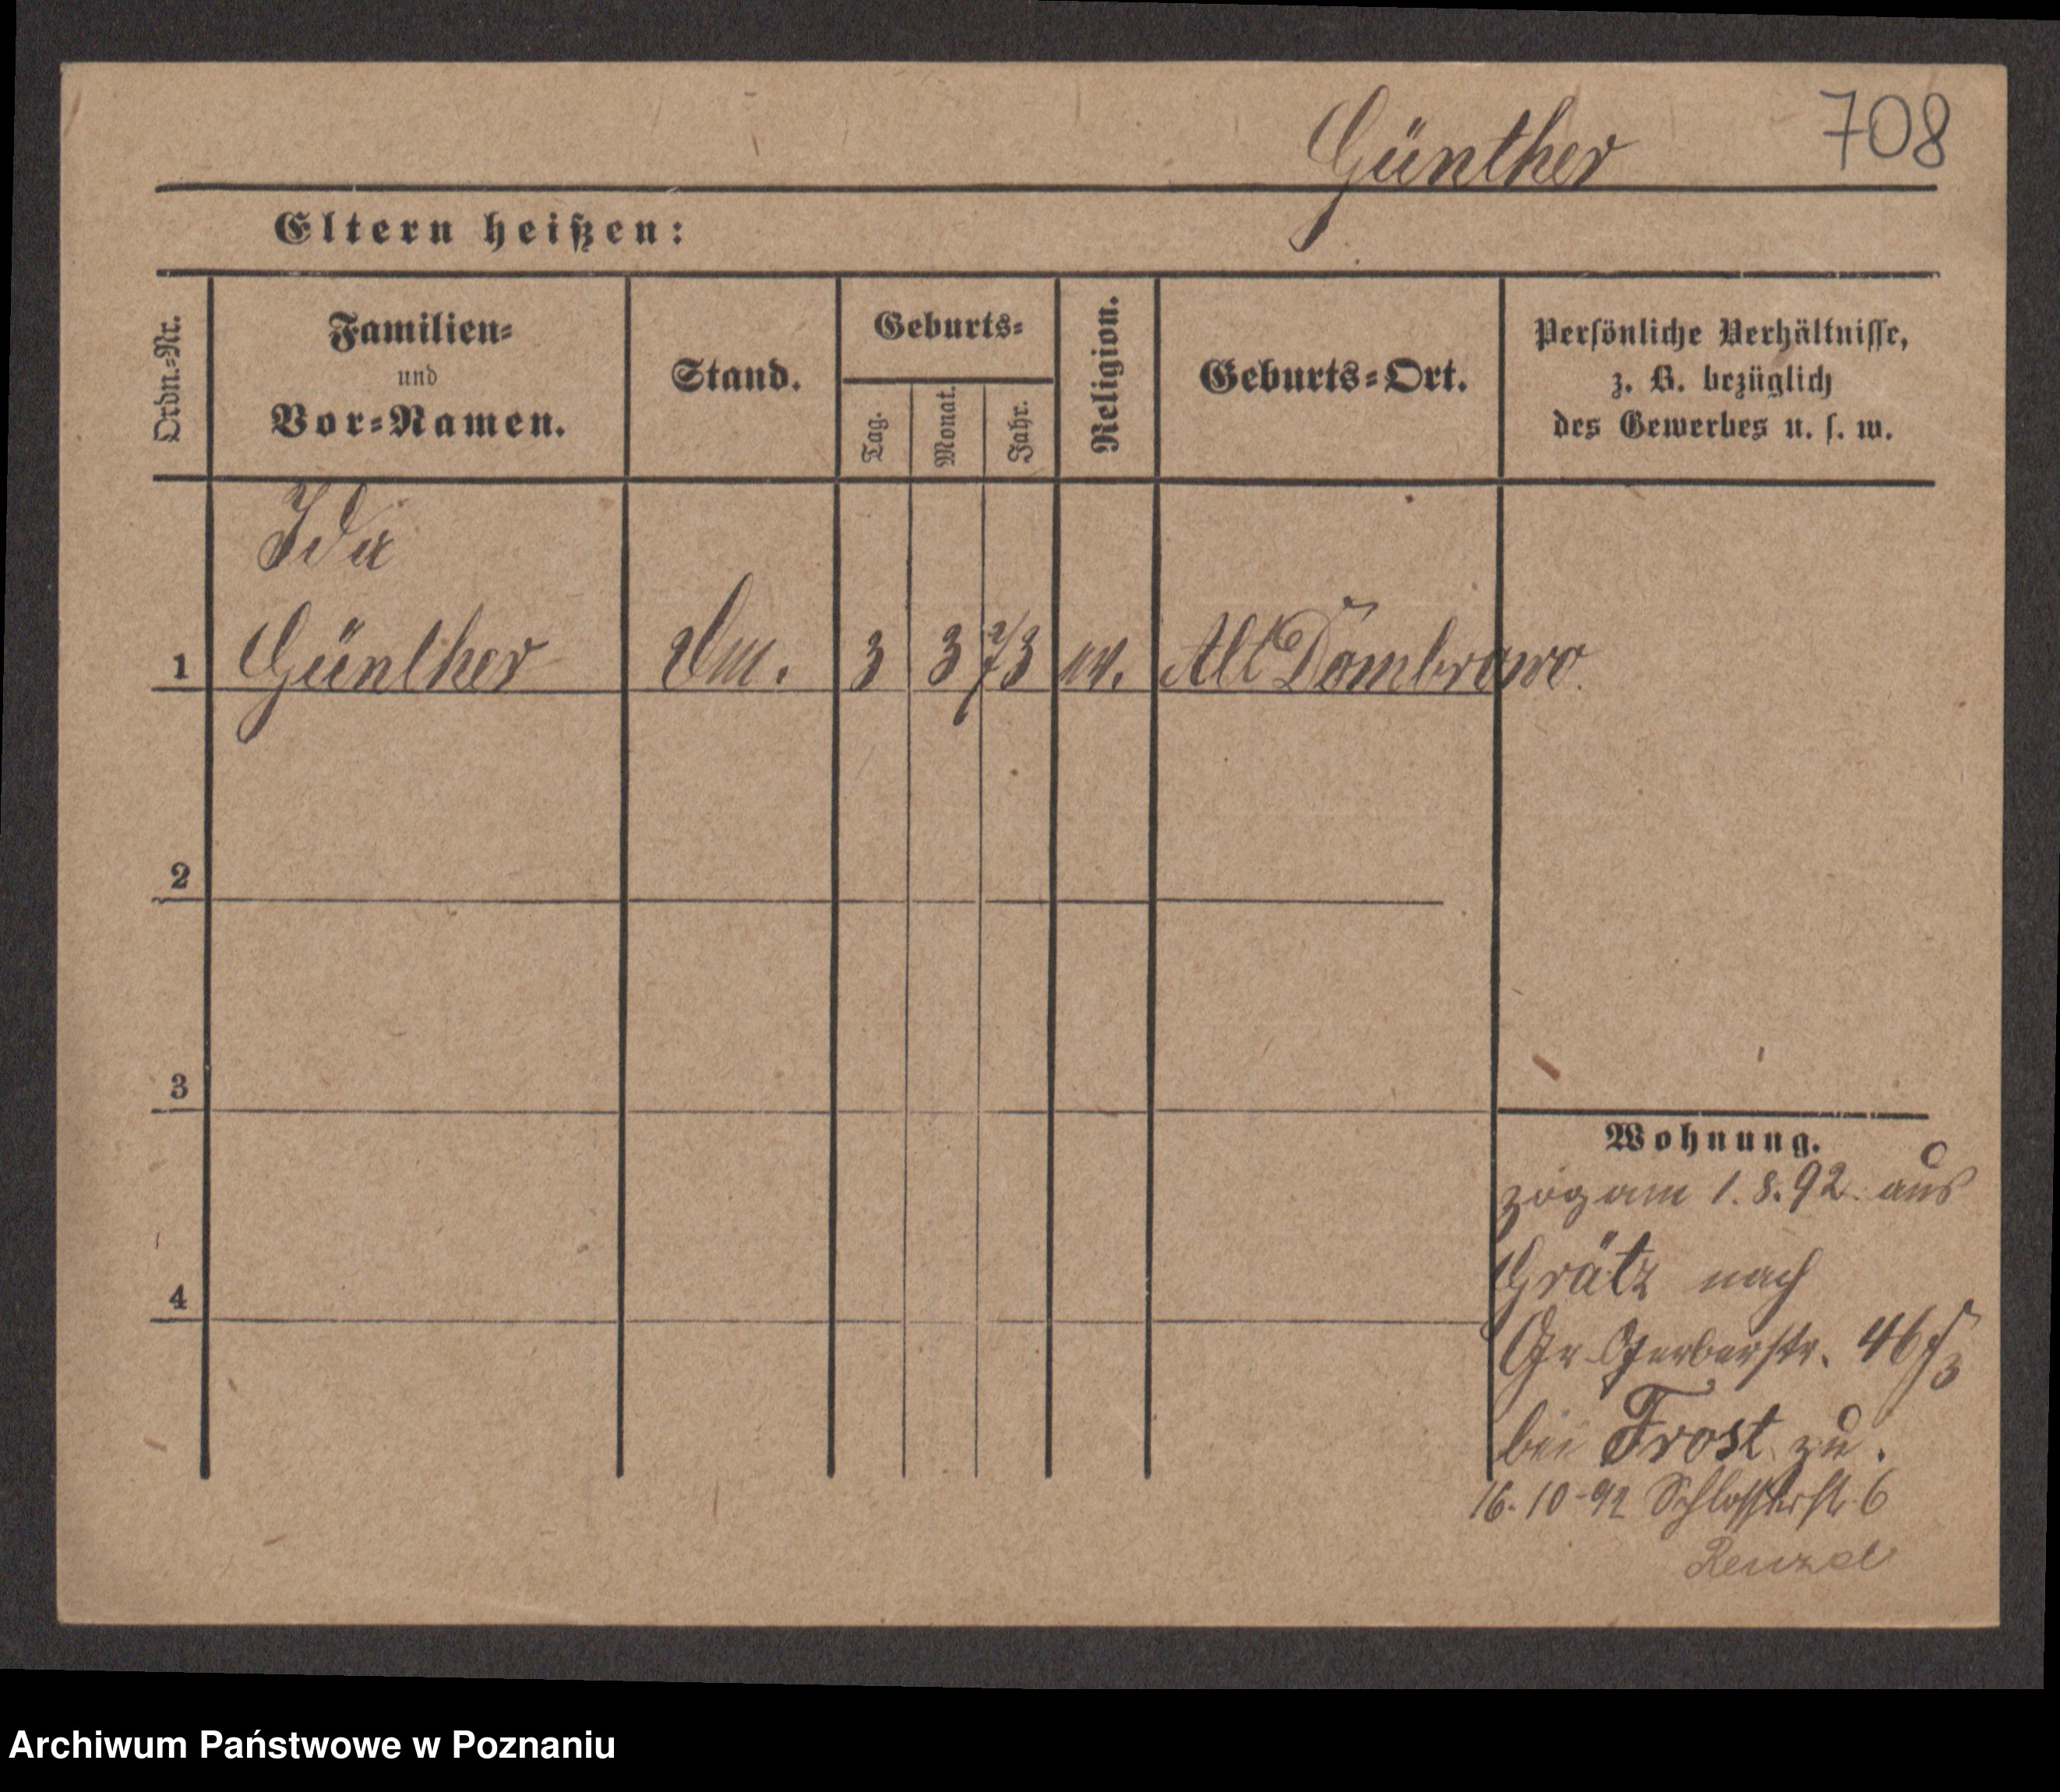 Günther 708
Eltern heißen:
Ordn.-Nr.
Familien-
und
Vor-Namen.
Stand.
Geburts-
Tag.
Monat.
Jahr.
Religion.
Geburts-Ort.
Persönliche Verhältnisse,
z. B. bezüglich
des Gewerbes u. s. w.
Ida
1 Günther 3 3 73 Alt Dombrowo.
2
3
Wohnung.
zog am 1.8.92. aus
Grätz nach
4
Gr Gerberstr. 46
bei Frost zu.
16.10-92 Schlosserstr. 6
Archiwum Państwowe w Poznaniu